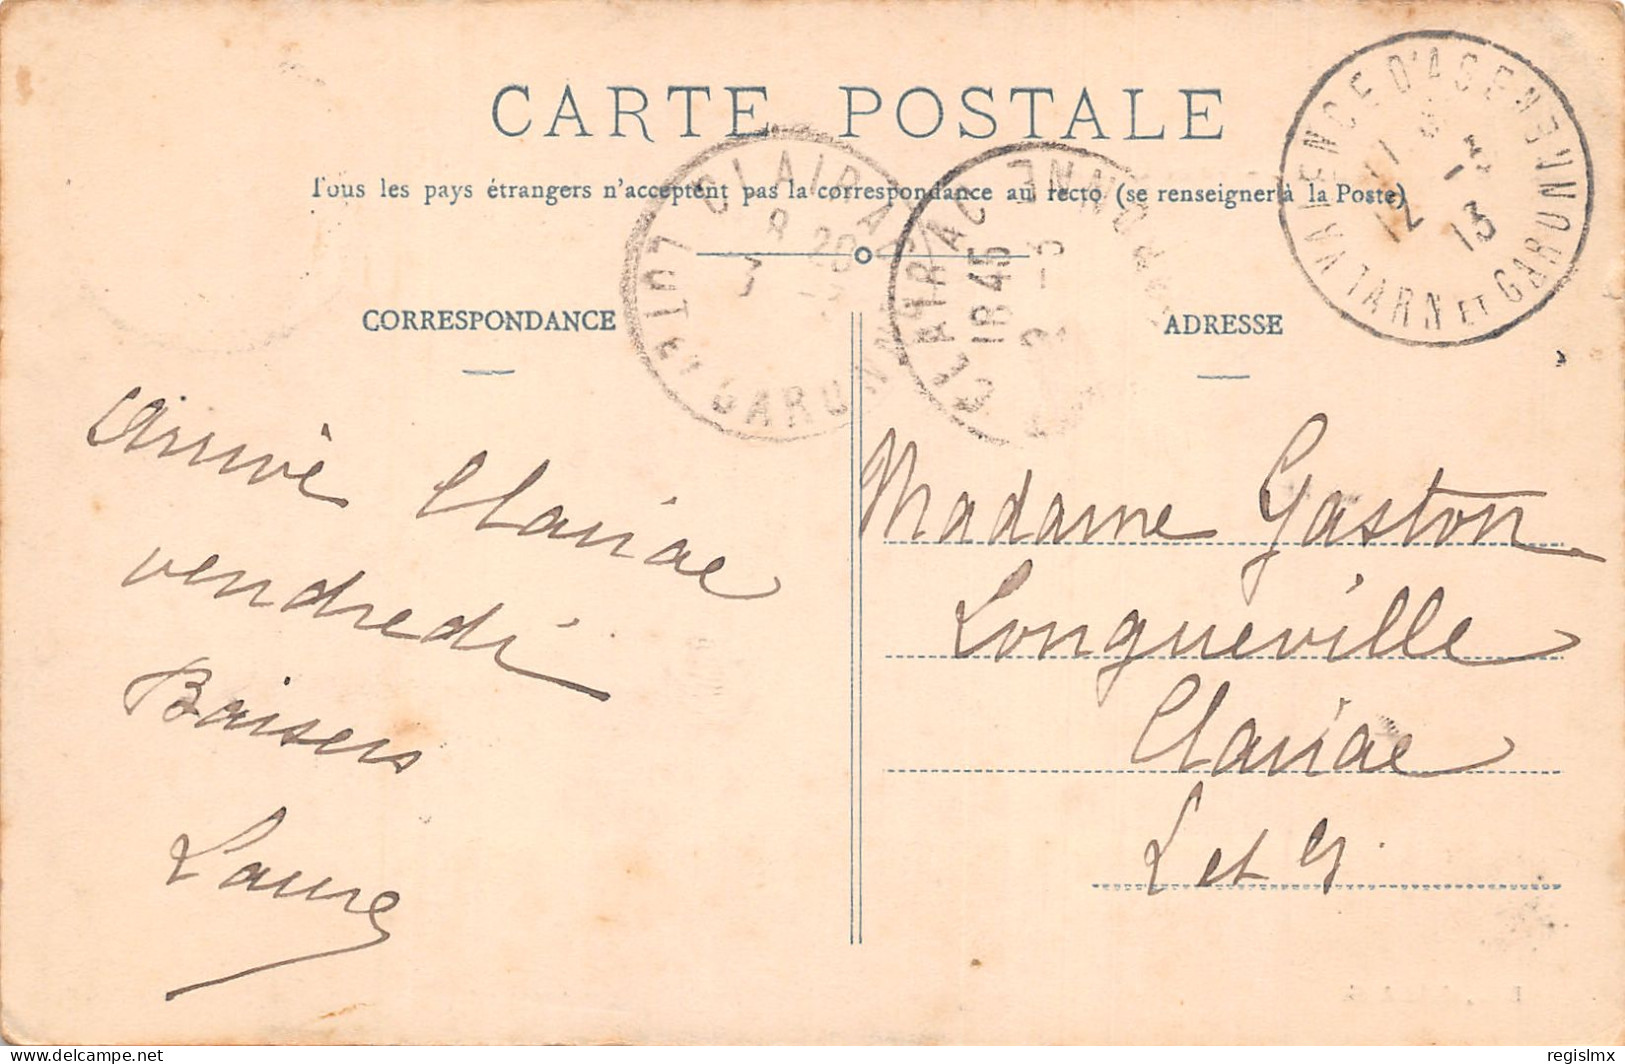 CARTE POSTALE
Tous les pays étrangers n'acceptent pas la correspondance au recto (se renseigner à la Poste)
VALENCE D'AGEN
TARN ET GARONNE
12
13
CLAIRAC
LOT ET GARONNE
8 20
CLAIRAC
18 45
CORRESPONDANCE
Arrive Clairac
vendredi
Baisers
Laure
ADRESSE
Madame Gaston
Longueville
Clairac
L et G.
delcampe.net
regislmx